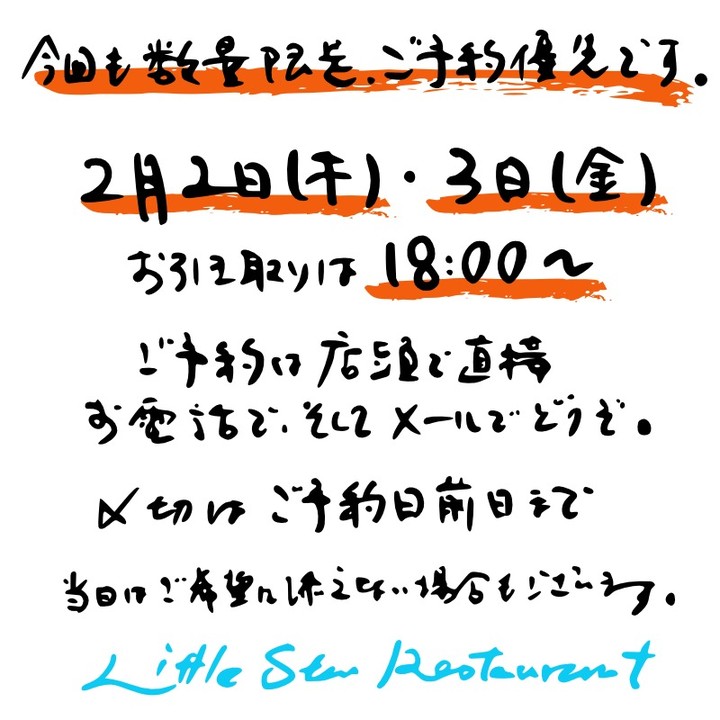 今回も数量限定、ご予約優先です。
2月2日(木)・3日(金)
お引き取りは 18:00〜
ご予約は店頭で直接
お電話で、そしてメールでどうぞ。
〆切はご予約日前日まで
当日はご希望に添えない場合もございます。
Little Star Restaurant